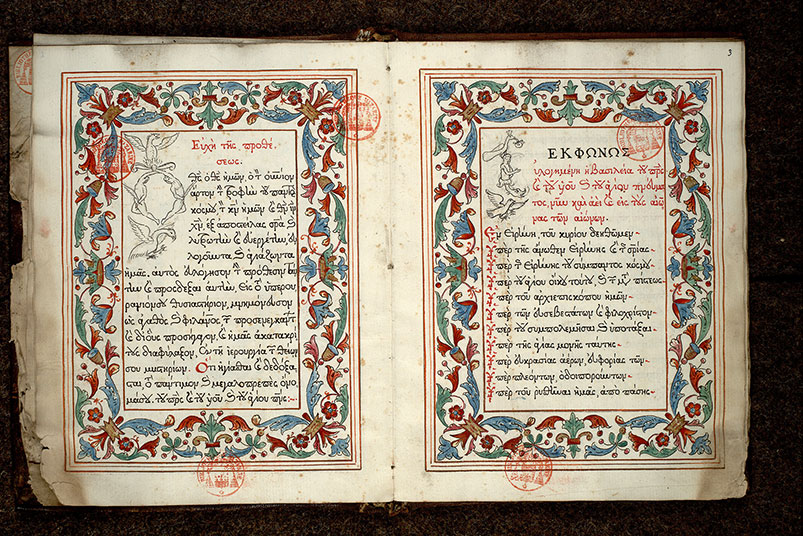 Εὐχὴ τῆς προθέ,
σεως.
Θς ὁ θς ἡμῶν, ὁ τ οὐνιον
ἄρτον τ τροφὴν τοῦ παντὸς
κόσμου τ κν ἡμῶν ϗ θν
χν, ἐξαποστείλας σρα ϗ
λυτρωτὴν ϗ εὐεργέτην, εὐ
λογοῦντα ϗ ἁγιάζοντα
ἡμᾶς, αὐτὸς εὐλόγησον τ πρόθεσιν ταύ
την ϗ πρόσδεξαι αὐτὴν, εἰς τὸ ὑπερου,
ράνιόν σου θυσιαστήριον, μνημόνευσον
ὡς ἀγαθὸς ϗ φιλάνος, τ προσενεγκάντ
ϗ δι' οὓς προσήγαγον, ϗ ἡμᾶς ἀκατακρί
τους διαφύλαξον, ἐν τῇ ἱερουργία τ θείων
σου μυστηρίων. Ὅτι ἡγίασται ϗ δεδόξα
ται, τὸ πάντιμον ϗ μεγαλοπρεπὲς ὄνο,
μά σου, τοῦ πρς ϗ τοῦ υἱοῦ ϗ τοῦ ἁγίου πνς:-
3
ΕΚΦΩΝΩΣ
υλογημένη ἡ βασιλεία τοῦ πρς
ϗ τοῦ υἱοῦ ϗ τοῦ ἁγίου πνεύμα
τος, νῦν καὶ ἀεὶ ϗ εἰς τοὺς αἰῶ
νας τῶν αἰώνων.
Ἐν εἰρήνῃ, τοῦ κυρίου δεηθῶμεν
Ὑπὲρ τῆς ἄνωθεν εἰρήνης ϗ τ σρίας
Ὑπὲρ τ εἰρήνης τοῦ σύμπαντος κόσμου
Ὑπὲρ τοῦ ἁγίου οἴκου τούτου, ϗ τ μ πίστεως
Ὑπὲρ τοῦ ἀρχιεπισκόπου ἡμῶν
Ὑπὲρ τῶν εὐσεβεστάτων ϗ φιλοχρίστων
Ὑπὲρ τοῦ συμπολεμῆσαι ϗ ὑποτάξαι
Ὑπὲρ τῆς ἁγίας μονῆς ταύτης
Ὑπὲρ εὐκρασίας ἀέρων, εὐφορίας τῶν
Ὑπὲρ πλεόντων, ὁδοιπορούντων
Ὑπὲρ τοῦ ρυσθῆναι ἡμᾶς, ἀπὸ πάσης